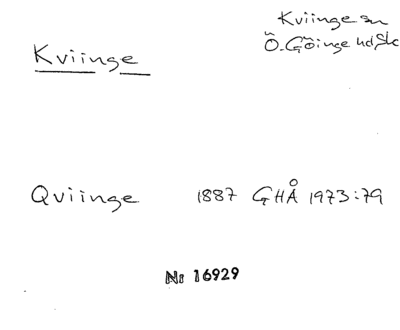 Kviinge sn
Ö.Göinge hd Sk
Kviinge
Qviinge 1887 GHÅ 1973:79
Nr 16929